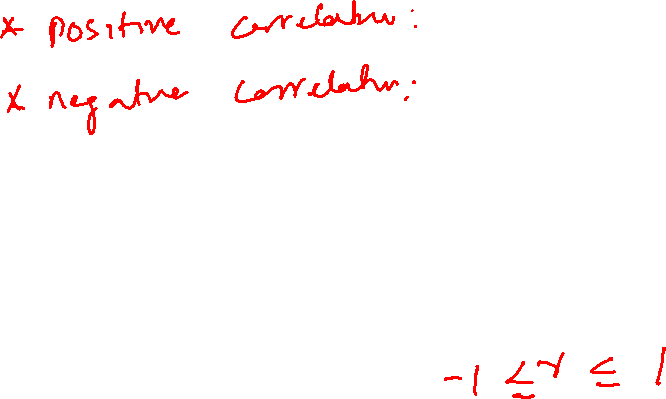 * positive correlation:
* negative correlation:
-1 ≤ r ≤ 1